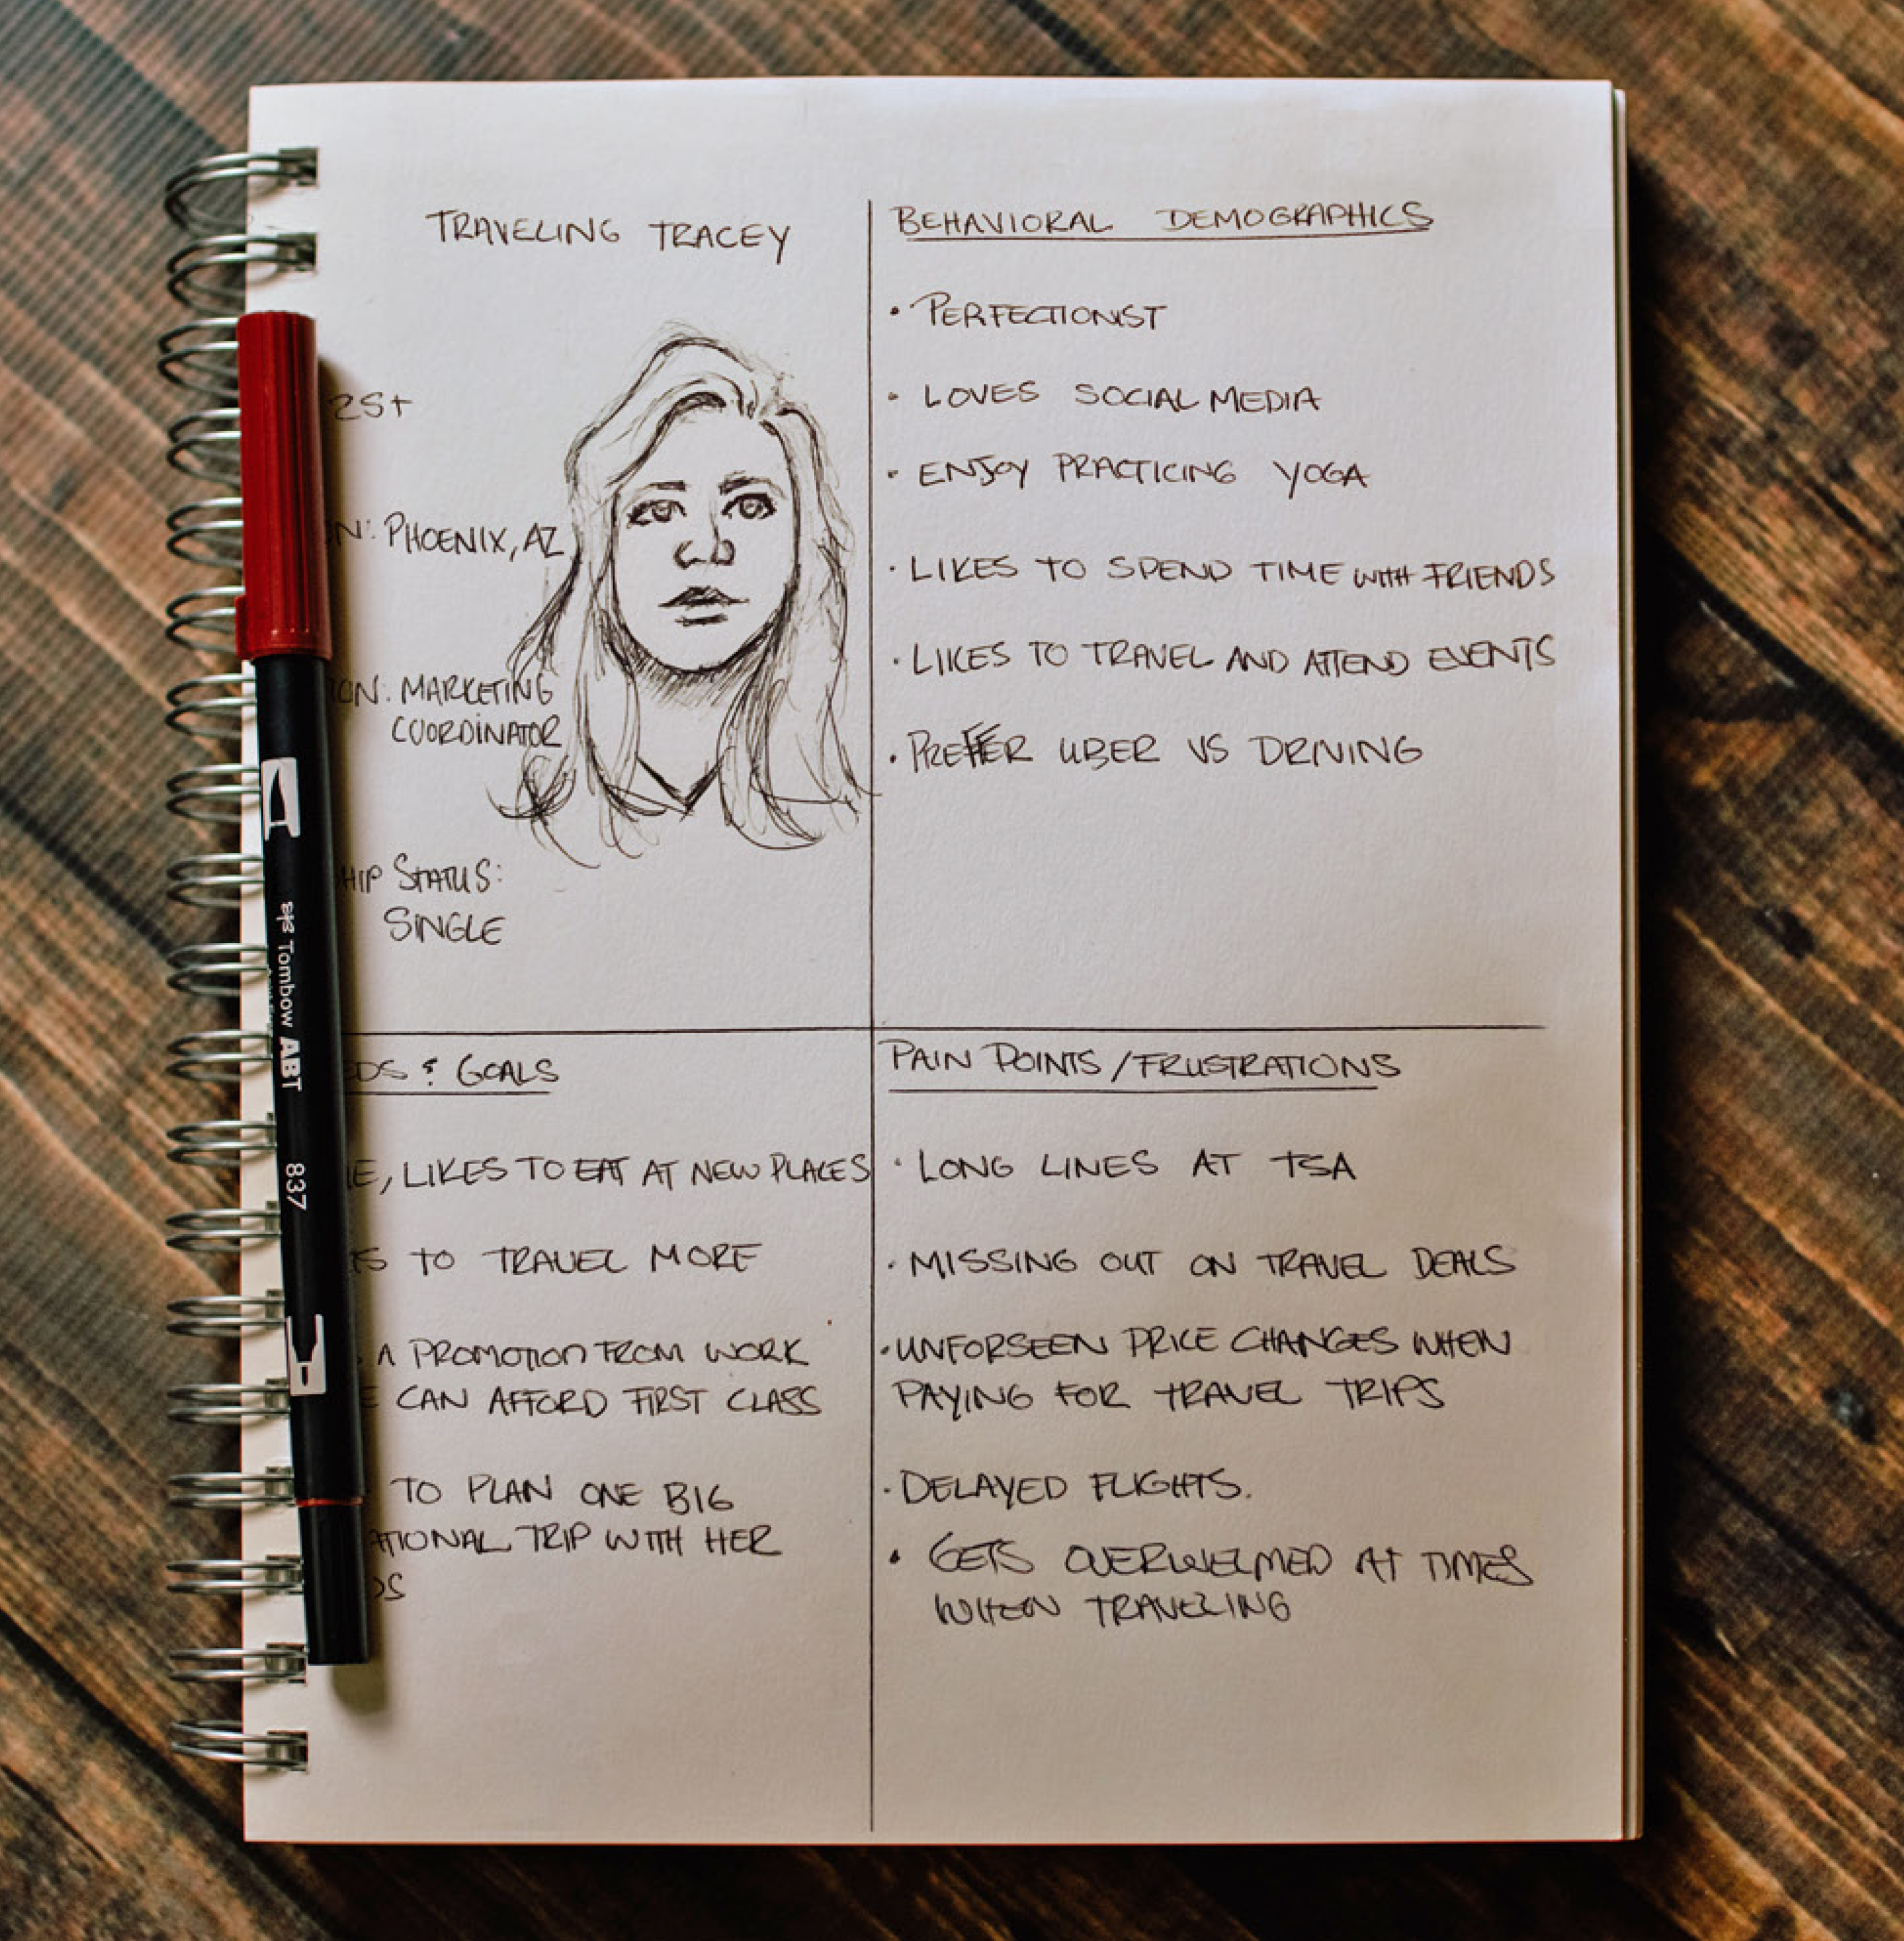 TRAVELING TRACEY
25+
PHOENIX, AZ
MARKETING
COORDINATOR
STATUS:
SINGLE
BEHAVIORAL DEMOGRAPHICS
• PERFECTIONIST
• LOVES SOCIAL MEDIA
• ENJOY PRACTICING YOGA
• LIKES TO SPEND TIME WITH FRIENDS
• LIKES TO TRAVEL AND ATTEND EVENTS
• PREFER UBER VS DRIVING
& GOALS
LIKES TO EAT AT NEW PLACES
TO TRAVEL MORE
A PROMOTION FROM WORK
CAN AFFORD FIRST CLASS
TO PLAN ONE BIG
TRIP WITH HER
PAIN POINTS / FRUSTRATIONS
• LONG LINES AT TSA
• MISSING OUT ON TRAVEL DEALS
• UNFORSEEN PRICE CHANGES WHEN
PAYING FOR TRAVEL TRIPS
• DELAYED FLIGHTS.
• GETS OVERWELMED AT TIMES
WHEN TRAVELING
Tombow ABT 837